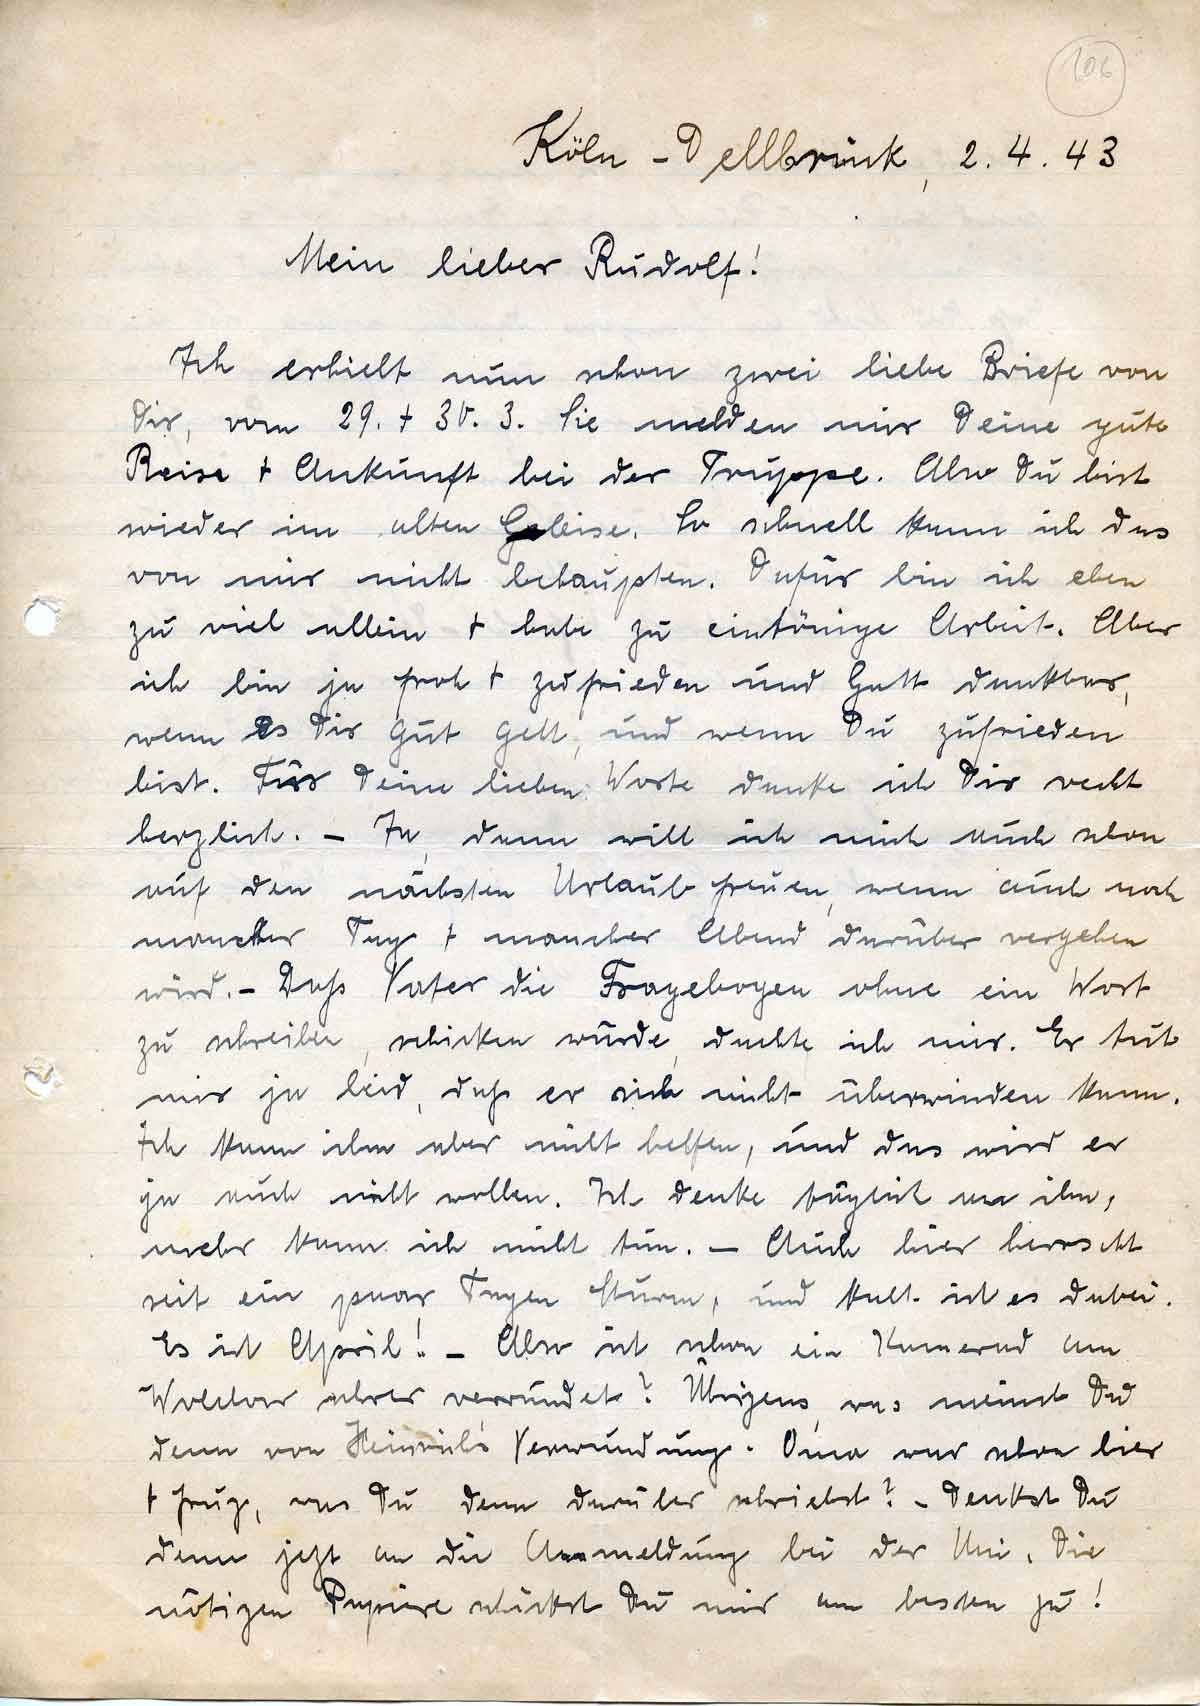 106
Köln - Dellbrück, 2.4.43
Mein lieber Rudolf!
Ich erhielt nun schon zwei liebe Briefe von
Dir, vom 29. + 30. 3. Sie melden mir Deine gute
Reise + Ankunft bei der Truppe. Also Du bist
wieder im alten Geleise. So schnell kann ich das
von mir nicht behaupten. Dafür bin ich eben
zu viel allein + habe zu eintönige Arbeit. Aber
ich bin ja froh + zufrieden und Gott dankbar,
wenn es Dir gut geht, und wenn Du zufrieden
bist. Für Deine lieben Worte danke ich Dir recht
herzlich. - Ja, dann will ich mich auch schon
auf den nächsten Urlaub freuen, wenn auch noch
mancher Tag + mancher Abend darüber vergehen
wird. - Daß Vater die Fragebogen ohne ein Wort
zu schreiben, schicken würde, dachte ich mir. Er tut
mir ja leid, daß er sich nicht überwinden kann.
Ich kann ihm aber nicht helfen, und das wird er
ja auch nicht wollen. Ich denke täglich an ihn,
mehr kann ich nicht tun. - Auch hier herrscht
seit ein paar Tagen Sturm, und kalt ist es dabei.
Es ist April! - Also ist schon ein Kamerad am
schwer verwundet? Übrigens, was meinst Du
denn von Heinrich's Verwundung. Oma war schon hier
+ frug, was Du denn darüber schriebst? - Denkst Du
denn jezt an die Anmeldung bei der Uni. Die
nötigen Papiere schickst Du mir am besten zu!